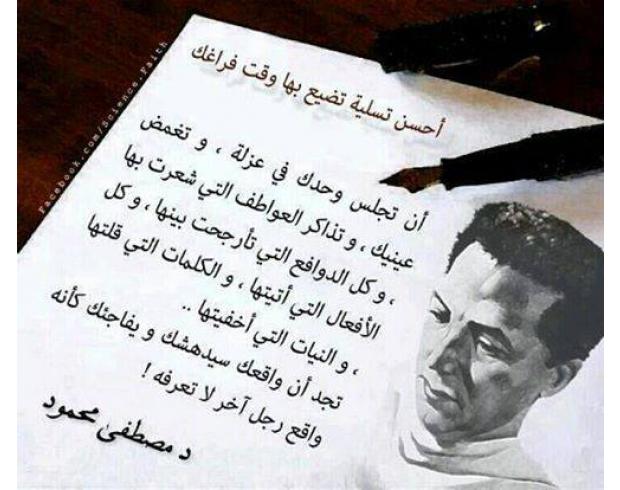 أحسن تسلية تضيع بها وقت فراغك
أن تجلس وحدك في عزلة ، و تغمض
عينيك ، و تذاكر العواطف التي شعرت بها
، و كل الدوافع التي تأرجحت بينها ، و كل
الأفعال التي أتيتها ، و الكلمات التي قلتها
، و النيات التي أخفيتها ..
تجد أن واقعك سيدهشك و يفاجئك كأنه
واقع رجل آخر لا تعرفه !
د مصطفى محمود
Facebook.com/Science.Faith